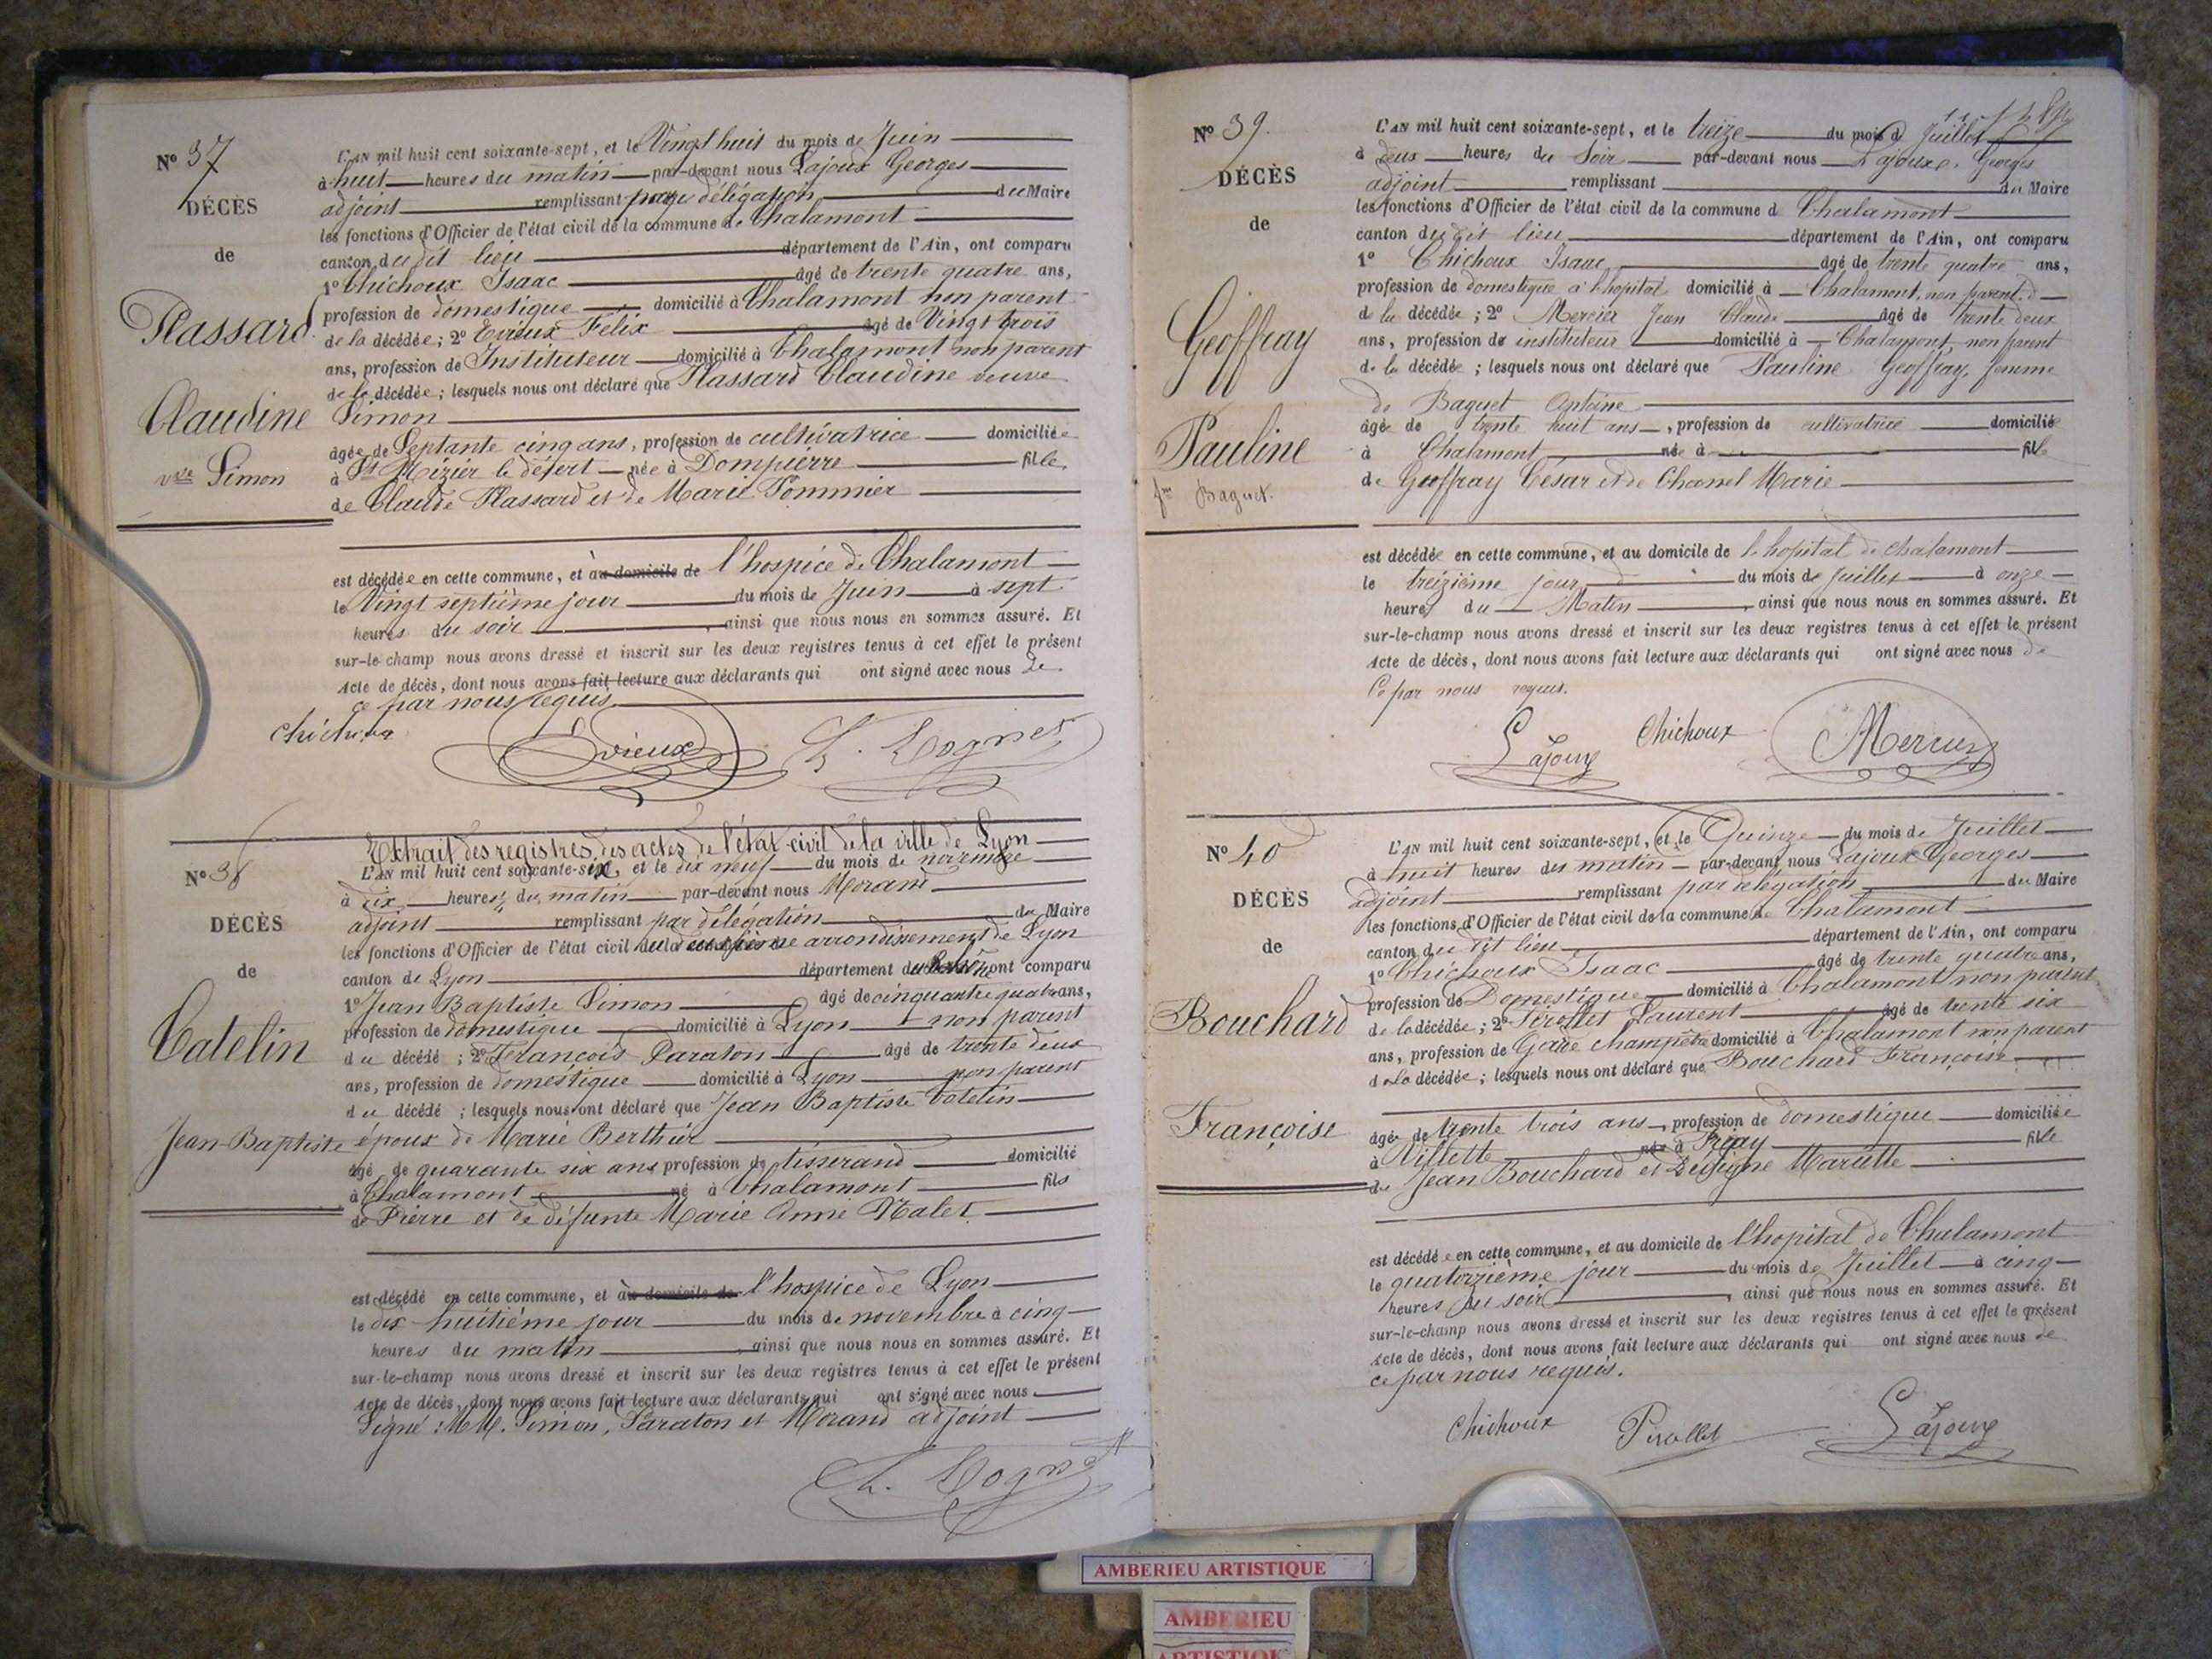 N° 37
DÉCÈS
de
Plassard
Claudine
vve Simon
L'AN mil huit cent soixante-sept, et le Vingt huit du mois de Juin
à huit heures du matin par-devant nous Lajoux Georges
adjoint remplissant par délégation du Maire
les fonctions d'Officier de l'état civil de la commune de Chalamont
canton du dit lieu département de l'Ain, ont comparu
1° Chichoux Isaac âgé de trente quatre ans,
profession de domestique domicilié à Chalamont non parent
de la décédée; 2° Evieux Félix âgé de Vingt trois
ans, profession de Instituteur domicilié à Chalamont non parent
de la décédée; lesquels nous ont déclaré que Plassard Claudine veuve
Simon
âgée de Septante cinq ans, profession de cultivatrice domiciliée
à St Nizier le désert née à Dompierre fille
de Claude Plassard et de Marie Pommier
est décédée en cette commune, et à au domicile de l'hospice de Chalamont
le Vingt septième jour du mois de Juin à sept
heures du soir, ainsi que nous nous en sommes assuré. Et
sur-le champ nous avons dressé et inscrit sur les deux registres tenus à cet effet le présent
Acte de décès, dont nous avons fait lecture aux déclarants qui ont signé avec nous de
ce par nous requis
Chichoux Evieux
N° 38
DÉCÈS
de
Catelin
Jean-Baptiste
Extrait des registres des actes de l'état civil de la ville de Lyon
L'AN mil huit cent soixante-six, et le dix neuf du mois de novembre
à dix heures du matin par-devant nous Morand
adjoint remplissant par délégation du Maire
les fonctions d'Officier de l'état civil du deuxième arrondissement de Lyon
canton de Lyon département du Rhône, ont comparu
1° Jean Baptiste Simon âgé de cinquante quatre ans,
profession de domestique domicilié à Lyon non parent
du décédé; 2° François Paraton âgé de trente deux
ans, profession de domestique domicilié à Lyon non parent
du décédé; lesquels nous ont déclaré que Jean Baptiste Catelin
époux de Marie Berthier
âgé de quarante six ans profession de tisserand domicilié
à Chalamont né à Chalamont fils
de Pierre et de défunte Marie Anne Nalet
est décédé en cette commune, et à au domicile de l'hospice de Lyon
le dix-huitième jour du mois de novembre à cinq
heures du matin, ainsi que nous nous en sommes assuré. Et
sur-le-champ nous avons dressé et inscrit sur les deux registres tenus à cet effet le présent
Acte de décès, dont nous avons fait lecture aux déclarants qui ont signé avec nous
Signé: MM. Simon, Paraton et Morand adjoint
N° 39.
DÉCÈS
de
Geoffray
Pauline
fme Baguet.
L'AN mil huit cent soixante-sept, et le treize du mois d Juillet
à deux heures du Soir par-devant nous Lajoux Georges
adjoint remplissant du Maire
les fonctions d'Officier de l'état civil de la commune d Chalamont
canton du dit lieu département de l'Ain, ont comparu
1° Chichoux Isaac âgé de trente quatre ans,
profession de domestique à l'hopital domicilié à Chalamont, non parent d
de la décédée; 2° Mercier Jean Claude âgé de trente deux
ans, profession de instituteur domicilié à Chalamont, non parent
de la décédée; lesquels nous ont déclaré que Pauline Geoffray, femme
de Baguet Antoine
âgée de trente huit ans, profession de cultivatrice domicilié
à Chalamont né à fille
de Geoffray César et de Chanel Marie
est décédée en cette commune, et au domicile de l'hopital de chalamont
le treizième jour du mois de Juillet à onze
heures du Matin, ainsi que nous nous en sommes assuré. Et
sur-le-champ nous avons dressé et inscrit sur les deux registres tenus à cet effet le présent
Acte de décès, dont nous avons fait lecture aux déclarants qui ont signé avec nous de
Ce par nous requis.
Lajoux Chichoux Mercier
N° 40
DÉCÈS
de
Bouchard
Françoise
L'AN mil huit cent soixante-sept, et le Quinze du mois de Juillet
à huit heures du matin par-devant nous Lajoux Georges
adjoint remplissant par délégation du Maire
les fonctions d'Officier de l'état civil de la commune de Chalamont
canton du dit lieu département de l'Ain, ont comparu
1° Chichoux Isaac âgé de trente quatre ans,
profession de Domestique domicilié à Chalamont non parent
de la décédée; 2° Pirollet Laurent âgé de trente six
ans, profession de Garde champêtre domicilié à Chalamont non parent
de la décédée; lesquels nous ont déclaré que Bouchard Françoise
âgée de trente trois ans, profession de domestique domiciliée
à Villette née à Priay fille
de Jean Bouchard et Mariette
est décédée en cette commune, et au domicile de l'hopital de Chalamont
le quatorzième jour du mois de Juillet à cinq
heures du soir, ainsi que nous nous en sommes assuré. Et
sur-le-champ nous avons dressé et inscrit sur les deux registres tenus à cet effet le présent
Acte de décès, dont nous avons fait lecture aux déclarants qui ont signé avec nous de
ce par nous requis.
Chichoux Pirollet Lajoux
AMBERIEU ARTISTIQUE
AMBERIEU
ARTISTIQUE